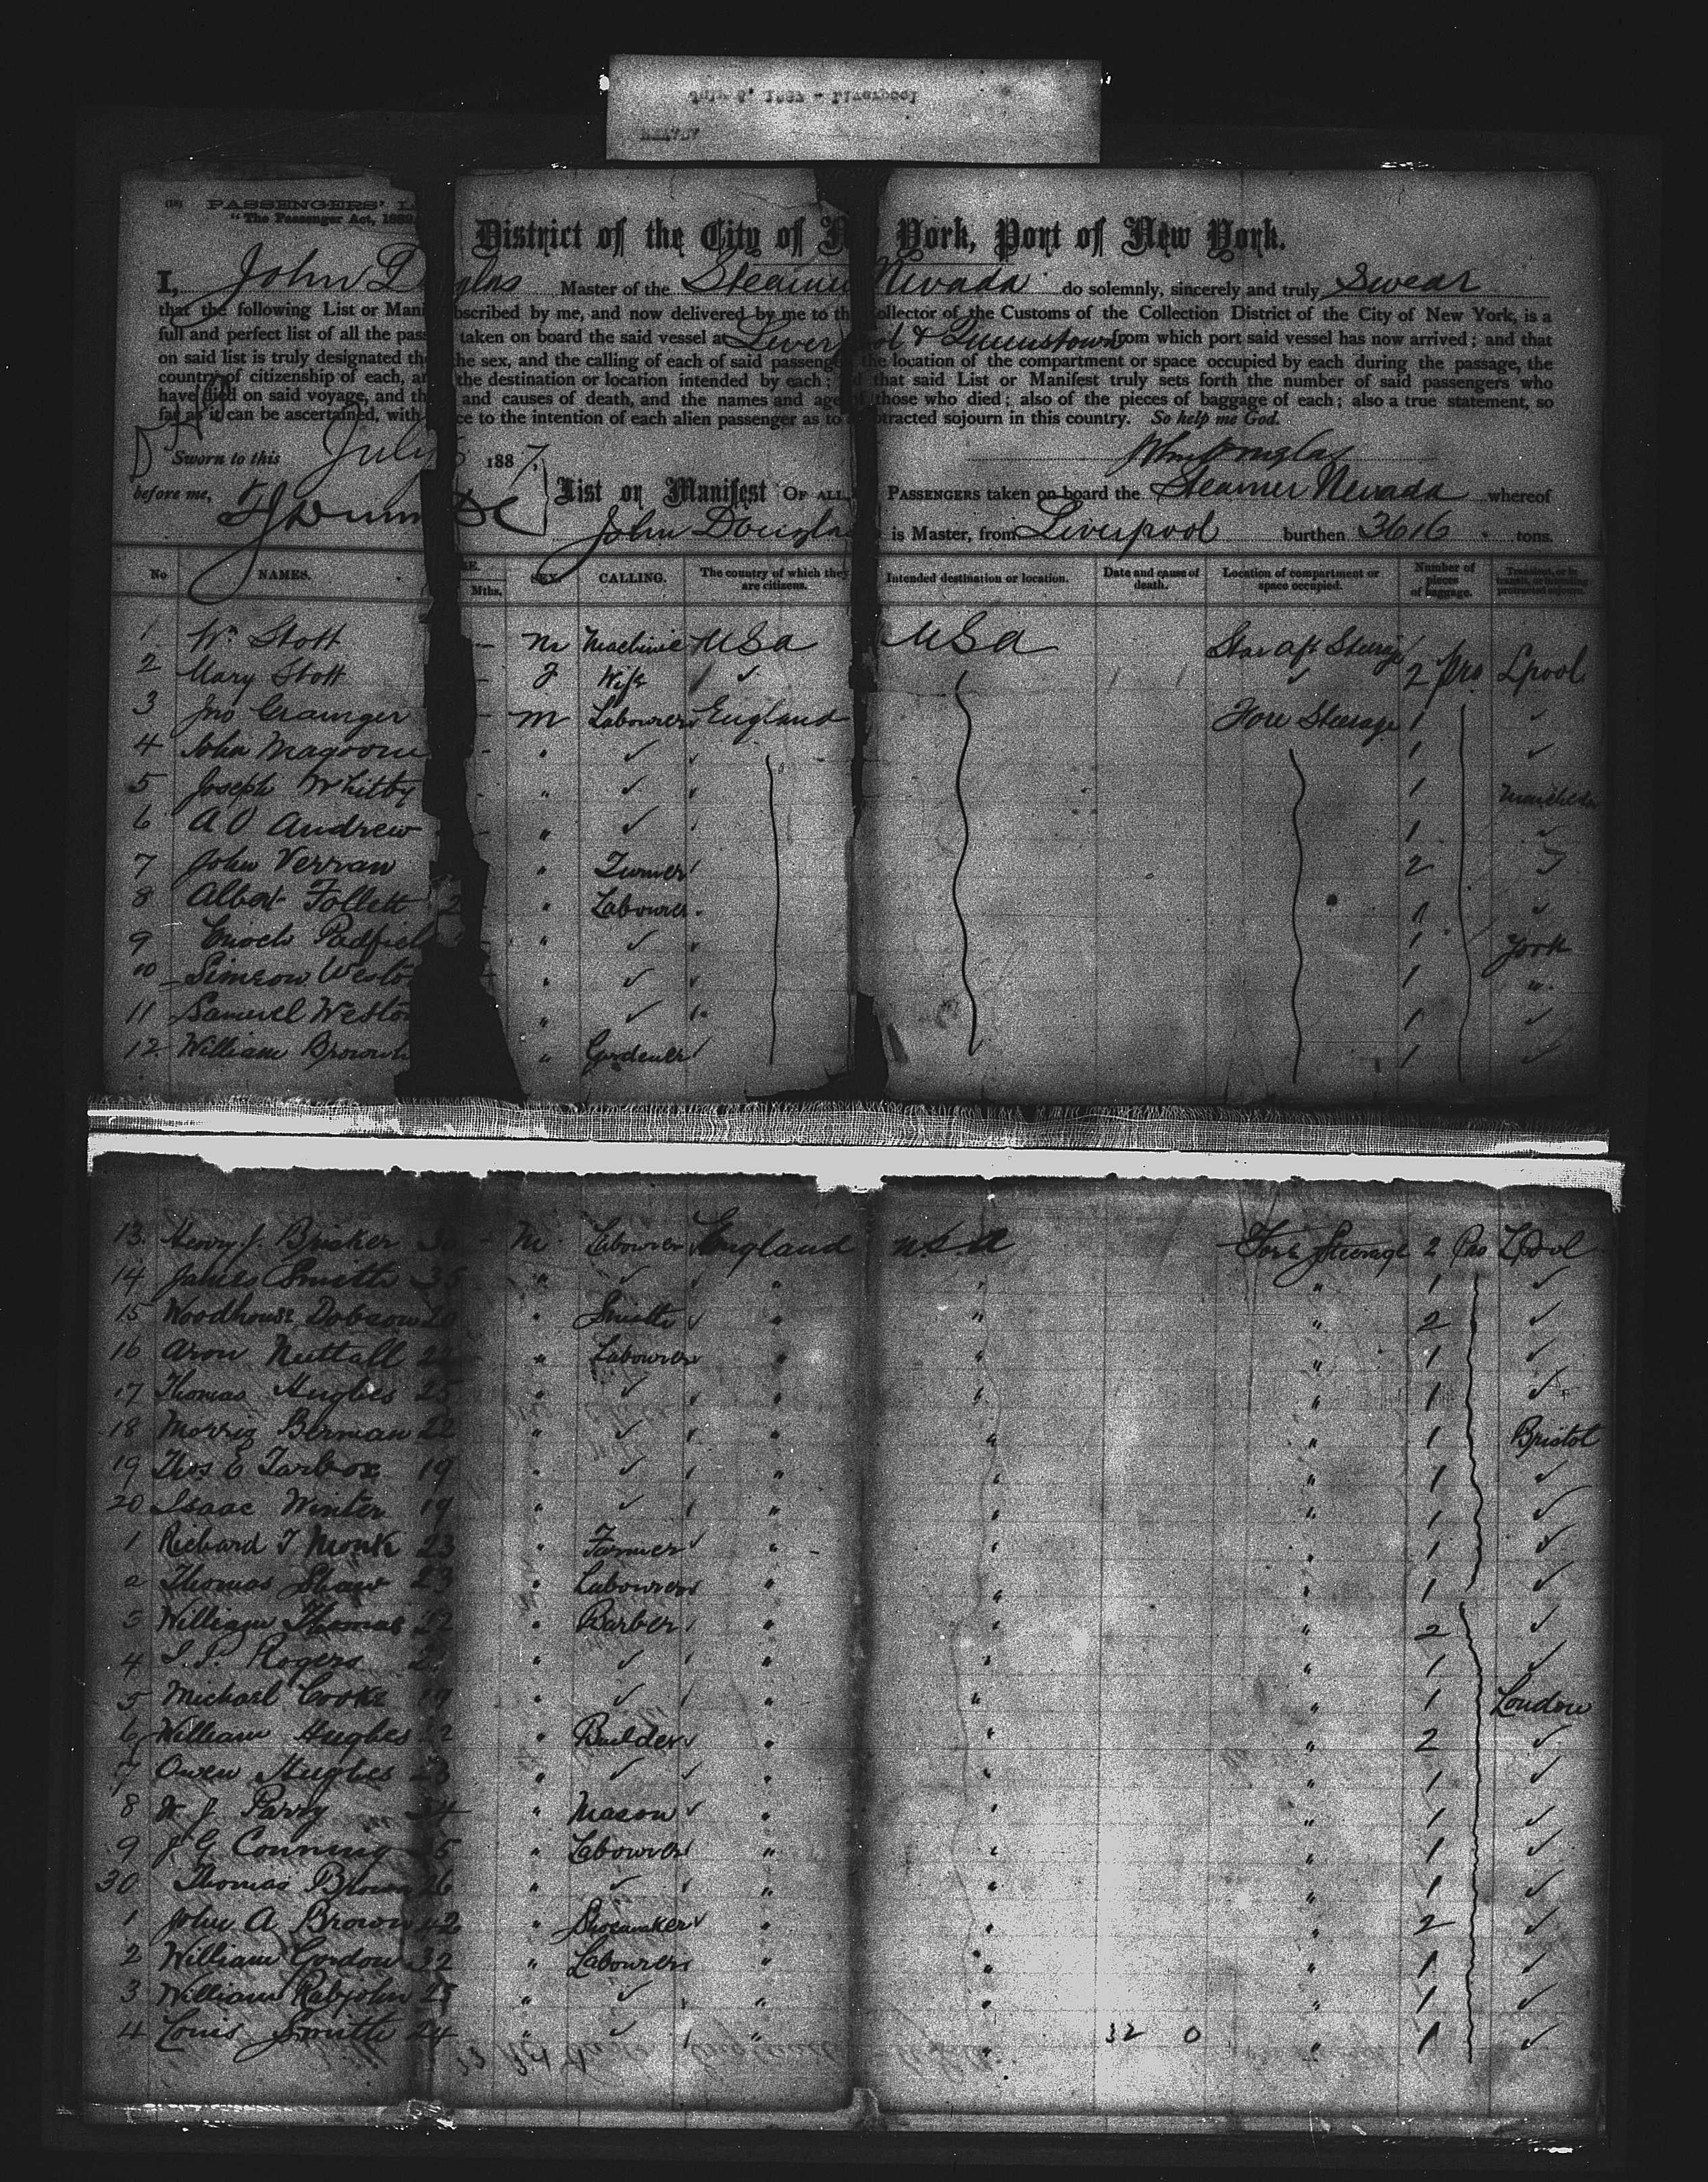 (18) PASSENGERS' L
"The Passenger Act, 1882
District of the City of N York, Port of New York.
I, John D glas Master of the Steamer Nevada do solemnly, sincerely and truly Swear
that the following List or Mani bscribed by me, and now delivered by me to th ollector of the Customs of the Collection District of the City of New York, is a
full and perfect list of all the pass taken on board the said vessel at Liverp ol & Queenstown from which port said vessel has now arrived; and that
on said list is truly designated th the sex, and the calling of each of said passenge the location of the compartment or space occupied by each during the passage, the
country of citizenship of each, an the destination or location intended by each; d that said List or Manifest truly sets forth the number of said passengers who
have died on said voyage, and th and causes of death, and the names and age of those who died; also of the pieces of baggage of each; also a true statement, so
far as it can be ascertained, with ce to the intention of each alien passenger as to otracted sojourn in this country. So help me God.
Sworn to this July 1887, John Douglas
before me, List or Manifest OF ALL PASSENGERS taken on board the Steamer Nevada whereof
John Douglas is Master, from Liverpool burthen 3616 tons.
No NAMES. E. Mths. SEX. CALLING. The country of which they are citizens. Intended destination or location. Date and cause of death. Location of compartment or space occupied. Number of pieces of baggage. Transient, or in transit, or intending protracted sojourn.
1 Wm Stott - M Machinie USA USA Star aft Steerage
2 Mary Stott - F Wife ✓ ✓ 2 Pro Lpool
3 Jno Grainger - M Labourer England Fore Steerage 1 ✓
4 John Magoorne - " ✓ ✓ 1 ✓
5 Joseph Whitby - " ✓ 1
6 A O Andrew - " ✓ 1 ✓
7 John Verran " Turner 2
8 Albert Follett 2 " Labourer 1 ✓
9 Enoch Padfiel " ✓ 1 York
10 Simeon Westo " ✓ 1 "
11 Samuel Westo " ✓ 1 ✓
12 William Brown " Gardener 1 ✓
13. Henry J. Brisker 30 - M Labourer England U.S.A Fore Steerage 2 Pro LPool
14 James Smith 35 " ✓ ✓ " " " 1 ✓
15 Woodhouse Dobson 20 " Smith ✓ " " " 2 ✓
16 Aron Nuttall " Labourer " " " 1 ✓
17 Thomas Hughes 25 " ✓ ✓ " " " 1 ✓
18 Morris Berman 22 " ✓ " " " 1 Bristol
19 Thos E Tarbox 19 " ✓ " " " 1 ✓
20 Isaac Winter 19 " ✓ " " " 1 ✓
1 Richard T Monk 23 " Farmer ✓ " " " 1 ✓
2 Thomas Shaw 23 " Labourer " " " 1 ✓
3 William Thomas 22 " Barber " " " 2 ✓
4 Rogers " ✓ " " " 1 ✓
5 Michael Cooke 19 " ✓ " " " 1 London
6 William Hughes 22 " Builder ✓ " " " 2 ✓
7 Owen Hughes 23 " ✓ ✓ " " " 1 ✓
8 W. J. Parry 34 " Mason ✓ " " " 1 ✓
9 J G Conning " Labourer " " " 1 ✓
30 Thomas Brown 26 " ✓ ✓ " " " 1 ✓
1 John A Brown 42 " Shoemaker ✓ " " " 2 ✓
2 William Gordon 32 " Labourer " " " 1 ✓
3 William Rabjohn " ✓ " " " 1 ✓
4 Louis Smith 24 " ✓ " " 32 0 " 1 ✓